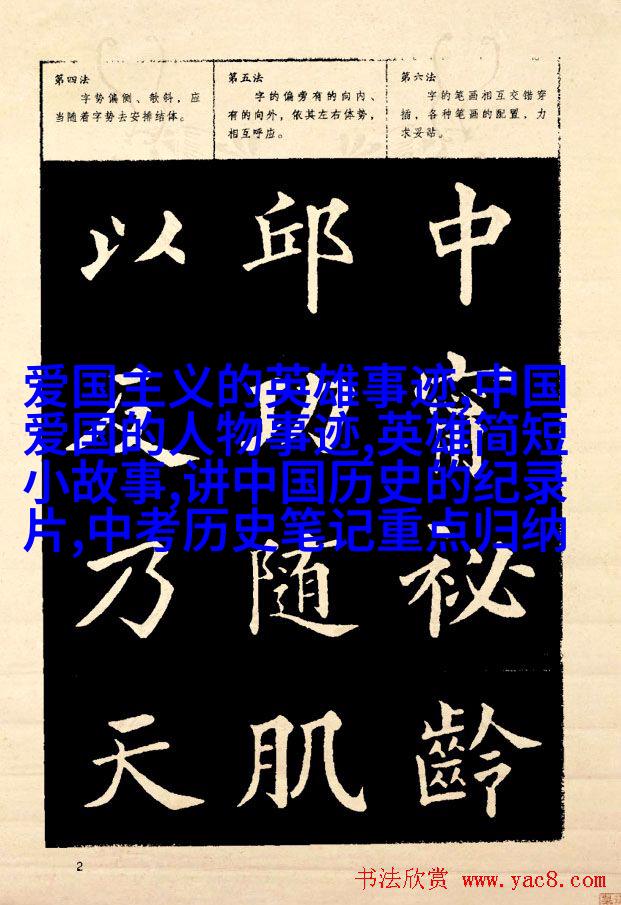 第四法
字势偏侧、欹斜，应
当随着字势去安排结体。
第五法
字的偏旁有的向内、
有的向外，依其左右体势，
相互呼应。
第六法
字的笔画相互交错穿
插，各种笔画的配置，力
求妥贴。
以 邱 中
爱国主义的英雄事迹,中国
爱国的人物事迹,英雄简短
小故事,讲中国历史的纪录
片,中考历史笔记重点归纳
及 以
乃 隨 秘
天 肌 齡
2
书法欣赏 www.yac8.com